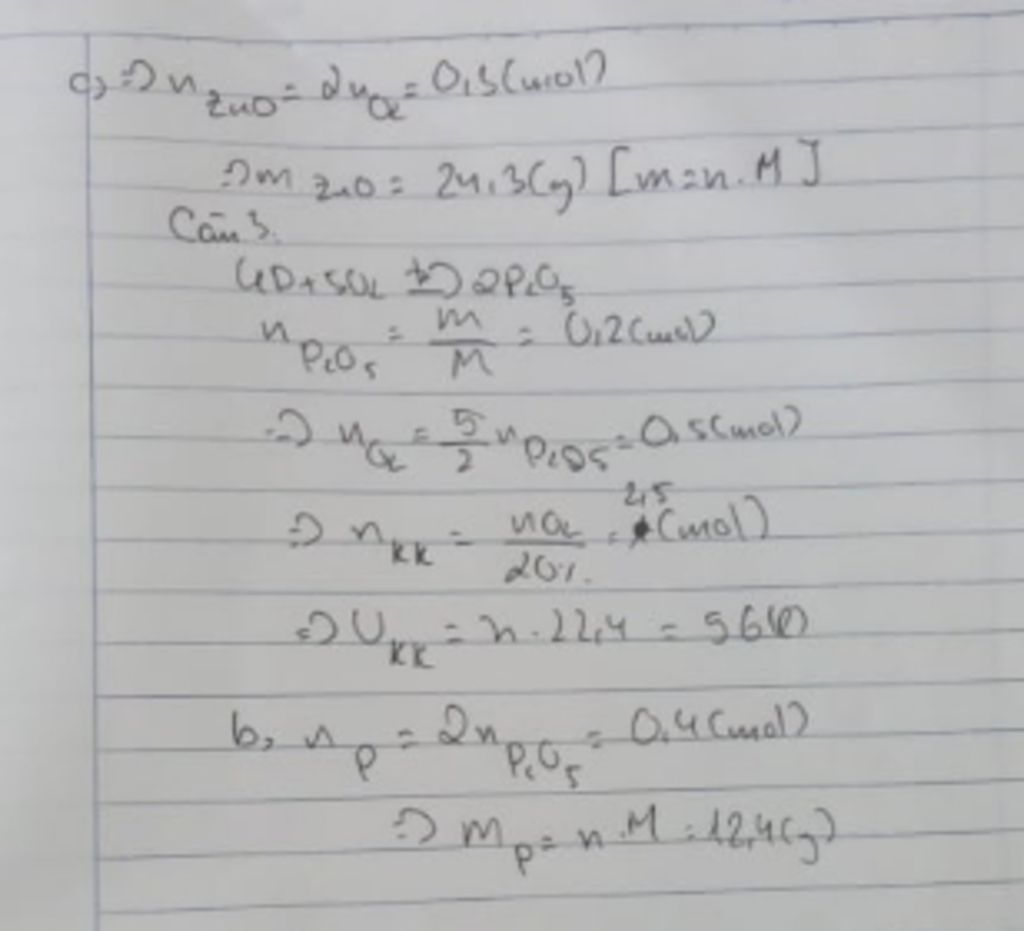 c, => n ZnO = 2nO2 = 0,3(mol)
=> m ZnO = 24,3(g) [m=n.M]
Câu 3.
4P+5O2 t°-> 2P2O5
n P2O5 = m/M = 0,2(mol)
=> n O2 = 5/2 n P2O5 = 0,5(mol)
=> n KK = nO2/20% = 2,5 (mol)
=> V KK = n.22,4 = 56(l)
b, n P = 2n P2O5 = 0,4(mol)
=> m P = n.M = 12,4(g)